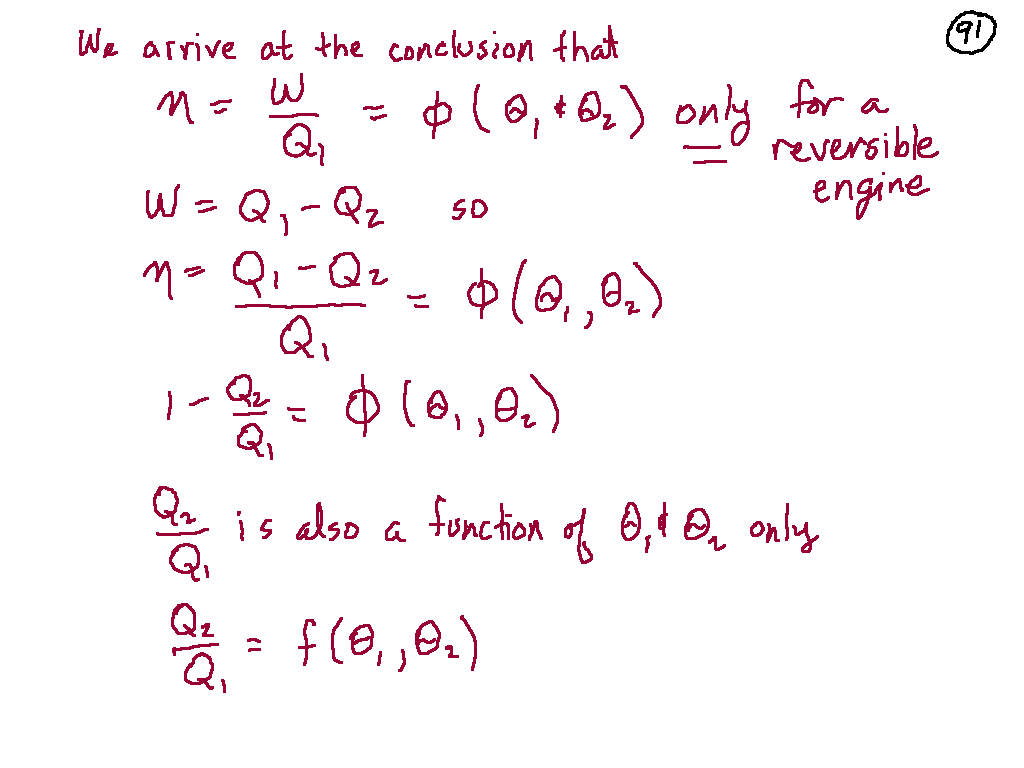 91
We arrive at the conclusion that
η = W/Q₁ = ϕ(θ₁ & θ₂) only for a reversible engine
W = Q₁ - Q₂ so
η = (Q₁ - Q₂)/Q₁ = ϕ(θ₁, θ₂)
1 - Q₂/Q₁ = ϕ(θ₁, θ₂)
Q₂/Q₁ is also a function of θ₁ & θ₂ only
Q₂/Q₁ = f(θ₁, θ₂)